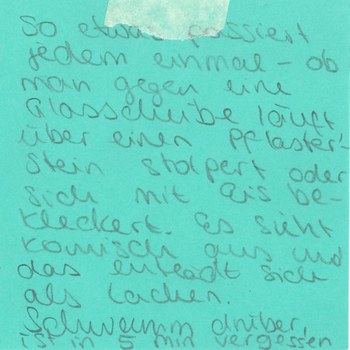 So etwas passiert
jedem einmal - ob
man gegen eine
Glasscheibe läuft
über einen Pflaster-
stein stolpert oder
sich mit Eis be-
kleckert. Es sieht
komisch aus und
das entlädt sich
als Lachen.
Schwamm drüber,
ist in 5 min vergessen